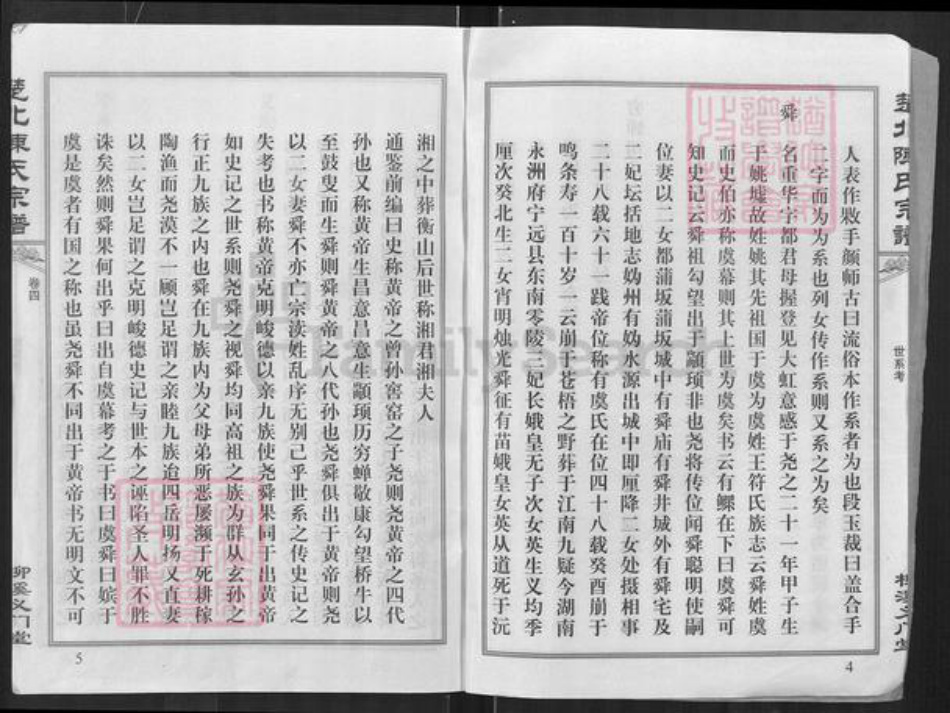 楚北陳氏宗譜
世系考
柳溪义门堂
人表作敤手颜师古曰流俗本作系者为也段玉裁曰盖合手
二字而为为系也列女传作系则又系之为矣
舜
名重华字都君母握登见大虹意感于尧之二十一年甲子生
于姚墟故姓姚其先祖国于虞为虞姓王符氏族志云舜姓虞
而史伯亦称虞幕则其上世为虞矣书云有鳏在下曰虞舜可
知史记云舜祖勾望出于颛顼非也尧将传位闻舜聪明使嗣
位妻以二女都蒲坂蒲坂城中有舜庙有舜井城外有舜宅及
二妃坛括地志妫州有妫水源出城中即厘降二女处摄相事
二十八载六十一践帝位称有虞氏在位四十八载癸酉崩于
鸣条寿一百十岁一云崩于苍梧之野葬于江南九疑今湖南
永洲府宁远县东南零陵三妃长娥皇无子次女英生义均季
厘次癸北生二女宵明烛光舜征有苗娥皇女英从道死于沅
4
湘之中葬衡山后世称湘君湘夫人
通鉴前编曰史称黄帝之曾孙窖窑之子尧则尧黄帝之四代
孙也又称黄帝生昌意昌意生颛顼历穷蝉敬康勾望桥牛以
至鼓叟而生舜则舜黄帝之八代孙也尧舜俱出于黄帝则尧
以二女妻舜不亦亡宗渎姓乱序无别己乎世系之传史记之
失考也书称黄帝克明峻德以亲九族使尧舜果同于出黄帝
如史记之世系则尧舜之视舜均同高祖之族为群从玄孙之
行正九族之内也舜在九族内为父母弟所恶屡濒于死耕稼
陶渔而尧漠不一顾岂足谓之亲睦九族迨四岳明扬又直妻
以二女岂足谓之克明峻德史记与世本之诬陷圣人罪不胜
诛矣然则舜果何出乎曰出自虞幕考之于书曰虞舜曰嫔于
虞是虞者有国之称也虽尧舜不同出于黄帝书无明文不可
楚北陳氏宗譜
卷四
柳溪义门堂
5
FamilySearch